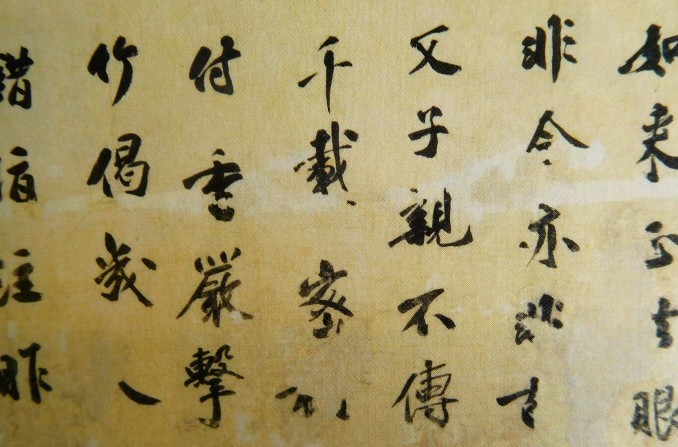 如来正法眼
非今亦非古
父子親不傳
千載密
付香嚴擊
竹偈幾人
錯指注昨